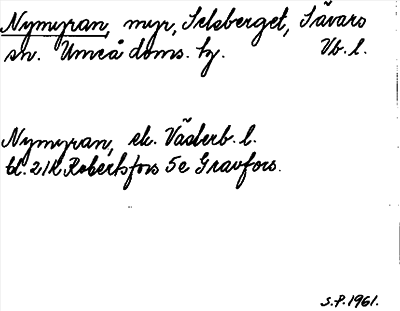 Nymyran, myr, Selsberget, Sävars
sn. Umeå doms. tg. Vb. l.
Nymyran, ek. Västerb. l.
bl. 21K Robertsfors 5e Gravfors.
S.P. 1961.